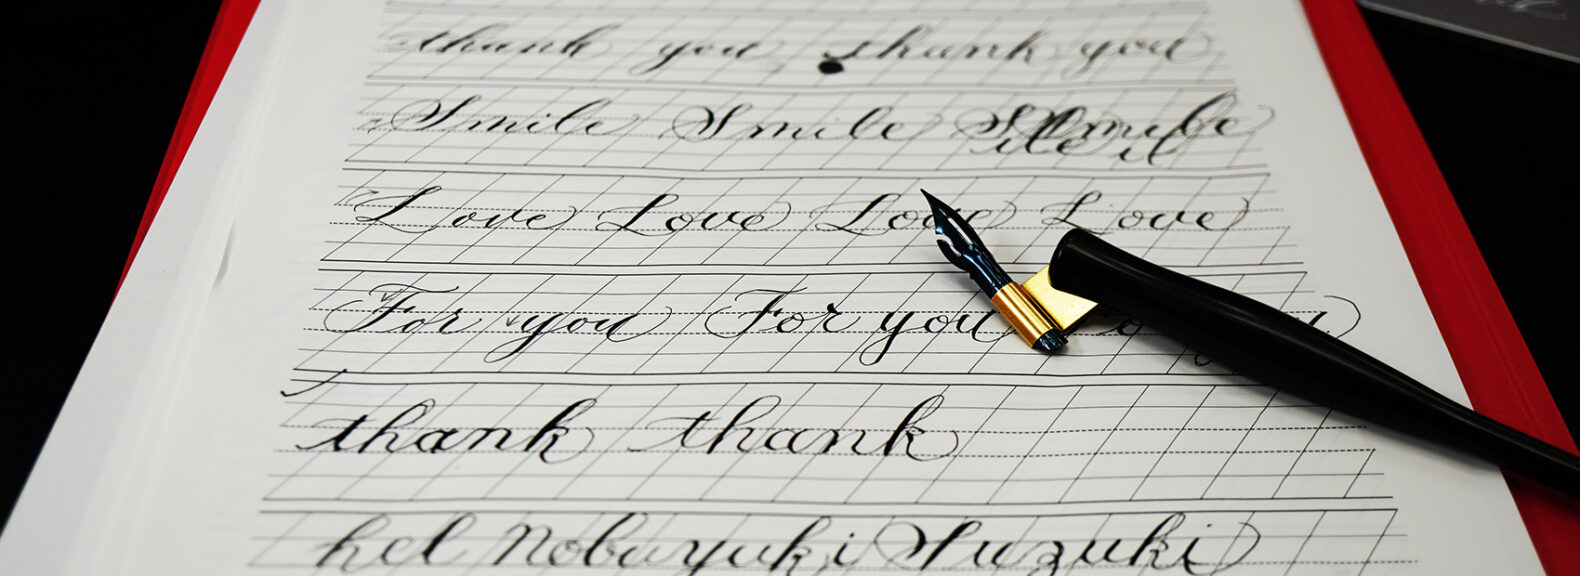 thank you thank you
Smile Smile Smile
Love Love Love Love
For you For you
thank thank
hel Nobuyuki Suzuki